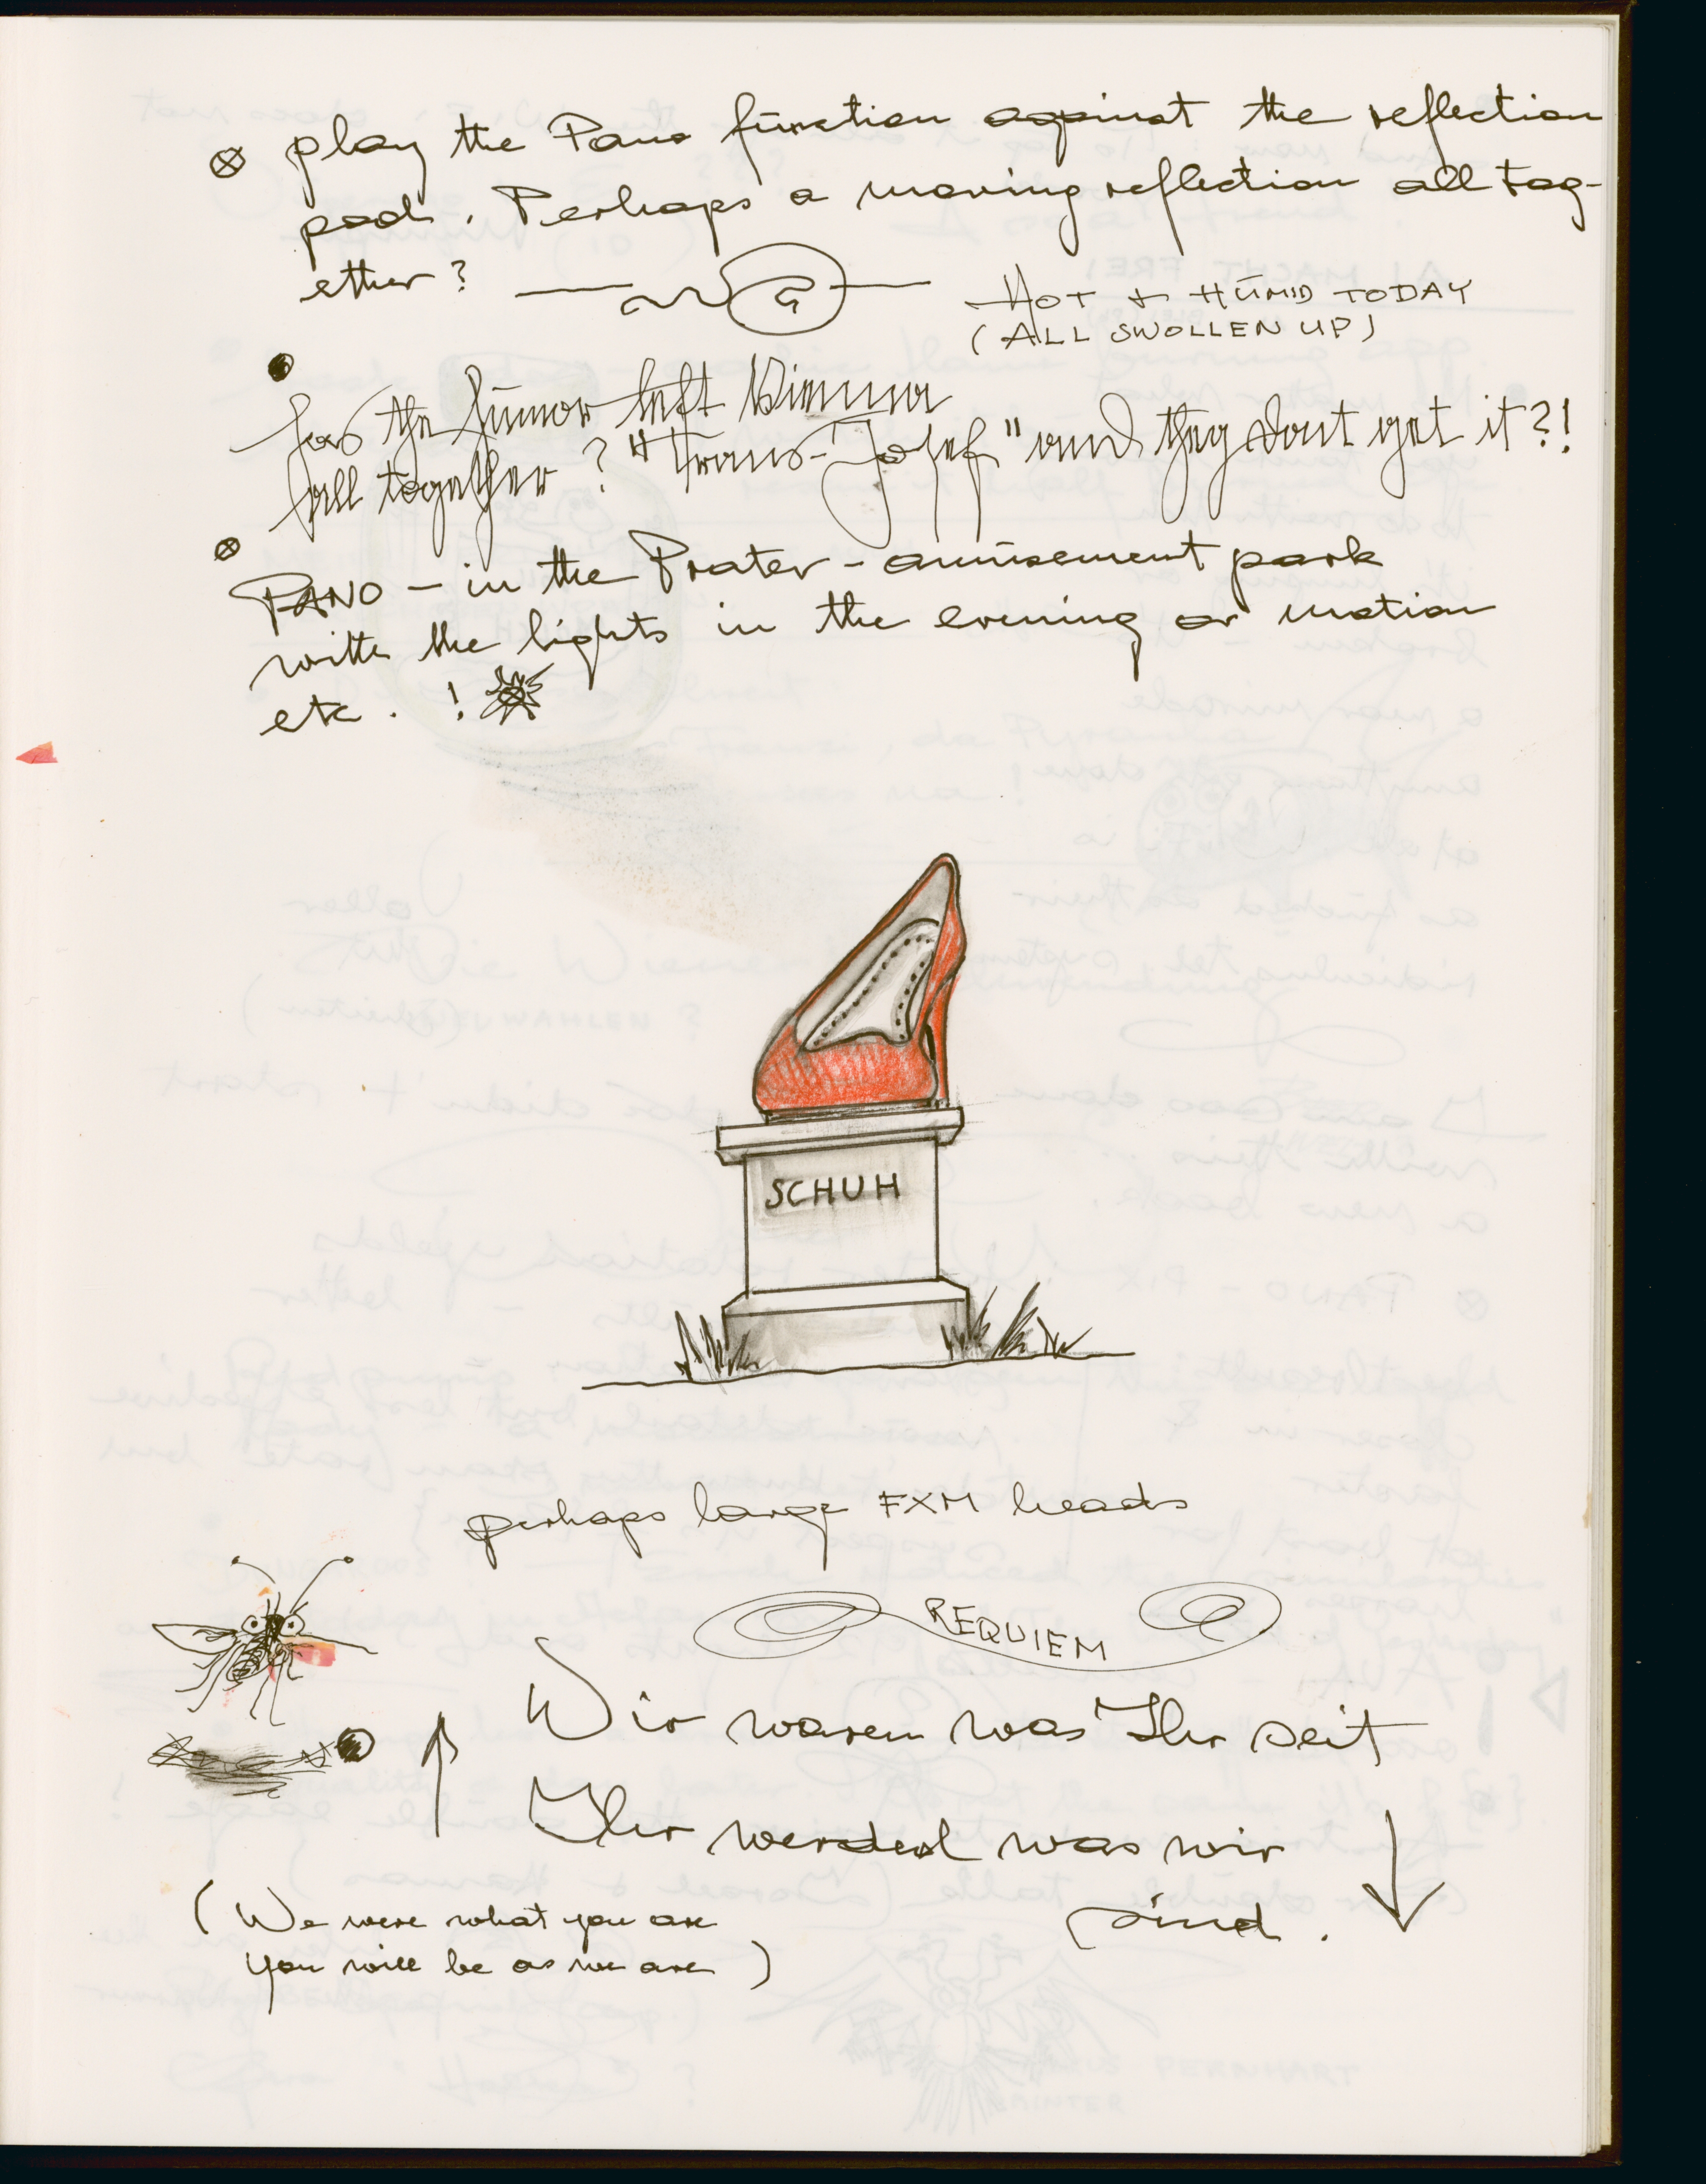 play the Pano function against the reflection
pods. Perhaps a moving reflection all tog-
ether?
HOT + HUMID TODAY
(ALL SWOLLEN UP)
has the humor left Vienna
all together? "Franz-Josef" and they dont get it?!
PANO - in the Prater - amusement park
with the lights in the evening or motion
etc. !
SCHUH
perhaps large FXM heads
REQUIEM
Wir waren was Ihr seit
Ihr werded was wir
sind.
(We were what you are
you will be as we are)